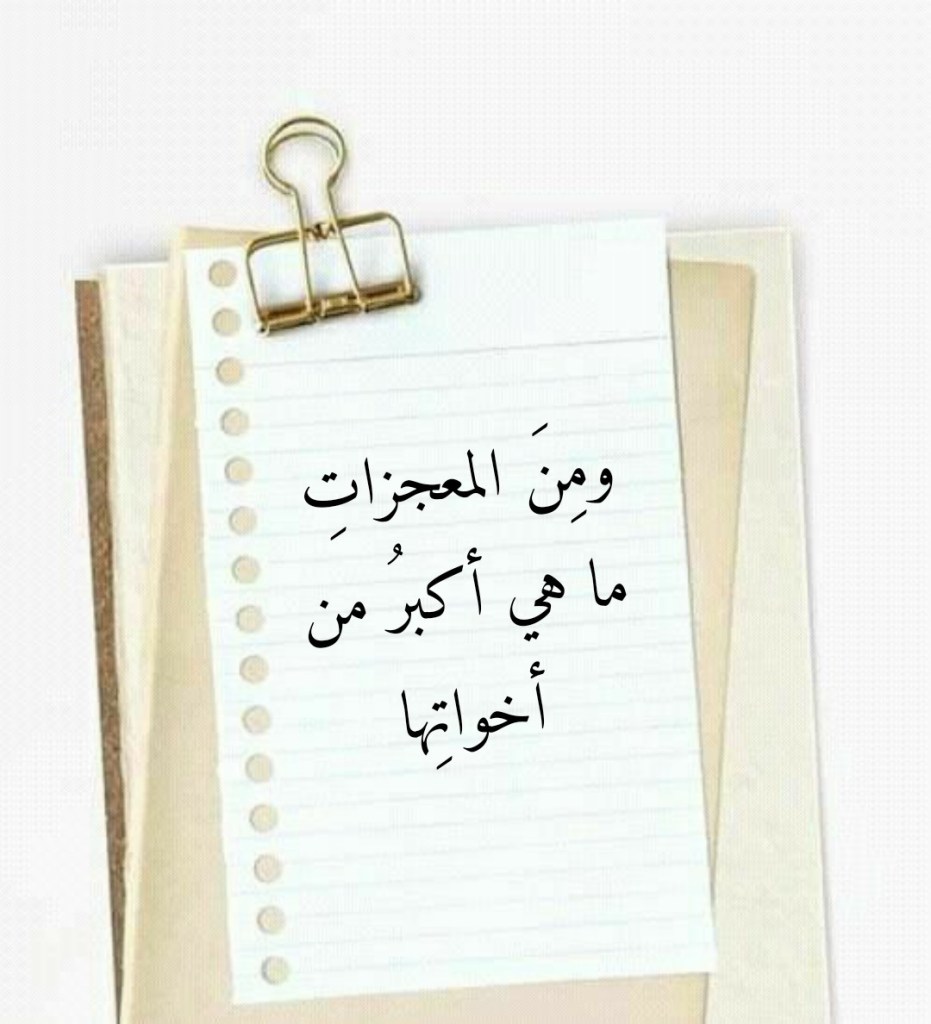 ومِنَ المعجزاتِ
ما هي أكبرُ من
أخواتِها